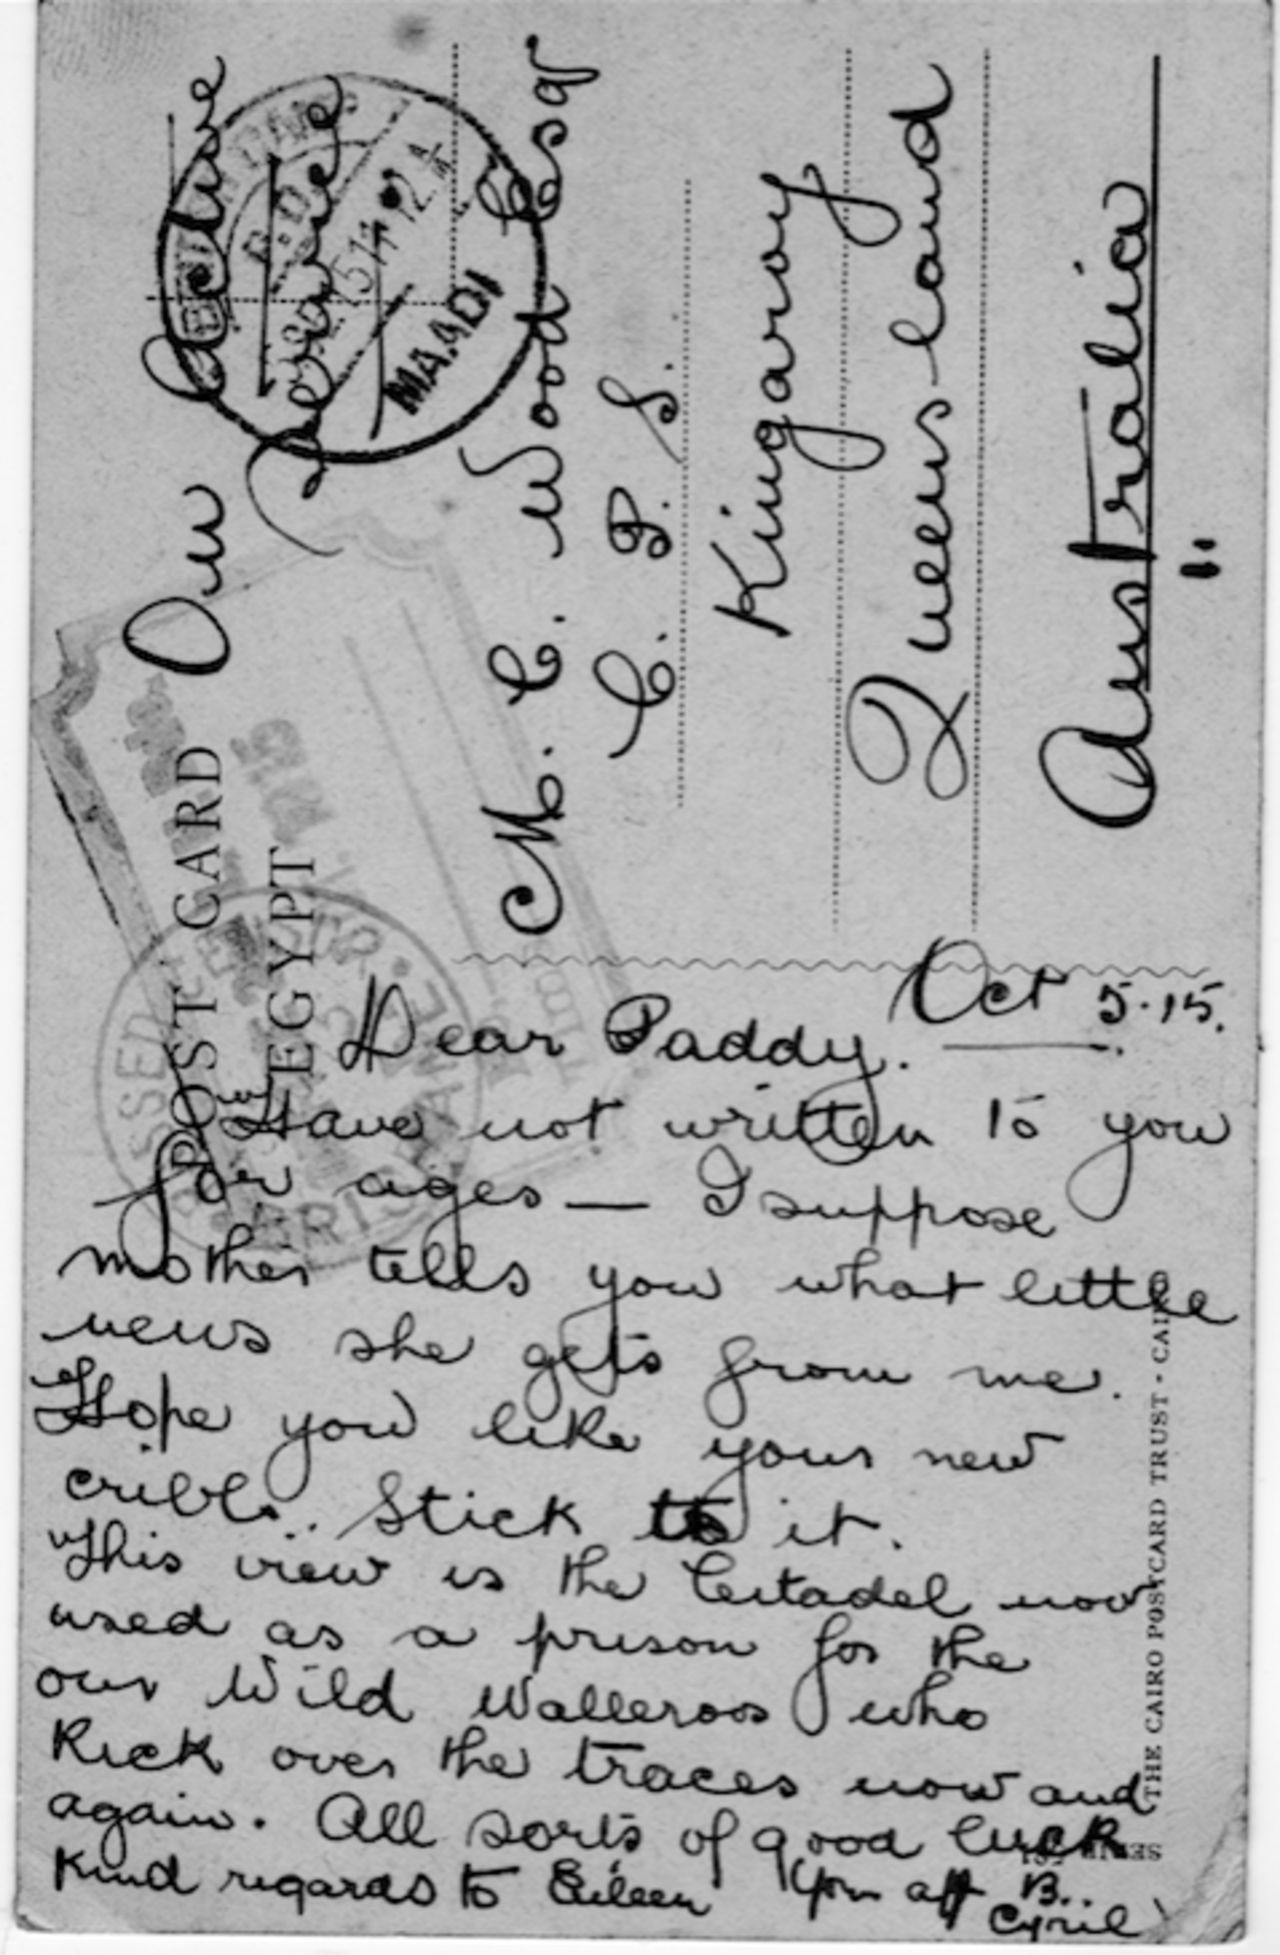 POST CARD
EGYPT
On Active
Service
MAADI
M. C. Wood Esq
C. P. S.
Kingaroy
Queensland
Australia
Oct 5.15.
Dear Paddy.
Have not written to you
for ages — I suppose
mother tells you what little
news she gets from me.
Hope you like your new
cribb. Stick to it.
This view is the Citadel now
used as a prison for the
our Wild Walleroos who
Kick over the traces now and
again. All sorts of good luck
Kind regards to Eileen Your aff B..
Cyril
THE CAIRO POSTCARD TRUST · CAIRO
SERIE
PASSED CENSOR
BRISBANE